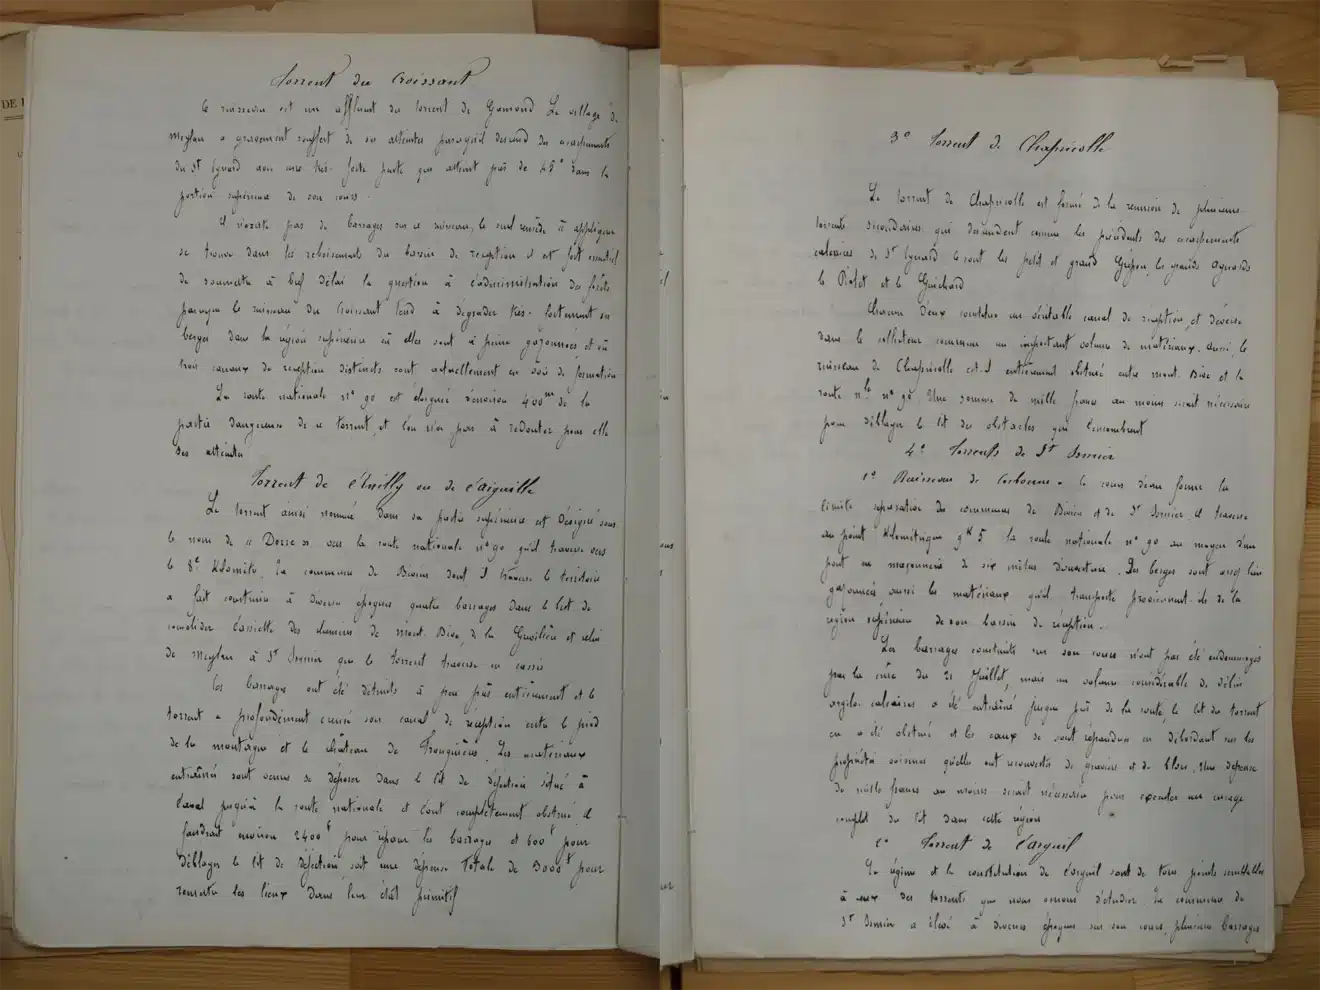 DE
Torrent du Croissant
Ce ruisseau est un affluent du torrent de Gamond Le village de
Meylan a gravement souffert de ses atteintes parcequ'il descend des escarpements
du St Eynard avec une très forte pente qui atteint près de 45° dans la
portion supérieure de son cours.
Il n'existe pas de barrages sur ce ruisseau, le seul remède à appliquer
se trouve dans les reboisements du bassin de réception il est fort essentiel
de soumettre à bref délai la question à l'administration des forêts
parceque le ruisseau du Croissant tend à dégrader très fortement ses
berges dans la région supérieure où elles sont à peine gazonnées, et où
trois canaux de réception distincts sont actuellement en voie de formation
La route nationale n° 90 est éloignée d'environ 400m de la
partie dangereuse de ce torrent, et l'on n'a pas à redouter pour elle
ses atteintes
Torrent de l'aiguille
Le torrent ainsi nommé dans sa partie supérieure est désigné sous
le nom de « Doree » vers la route nationale n° 90 qu'il traverse vers
le 8e Kilomètre. La commune de Biviers dont il traverse le territoire
a fait construire à diverses époques quatre barrages dans le but de
consolider l'assiette des chemins de Mont-Bive, de la Grivelière et celui
de Meylan à St Ismier que le torrent traverse en cassis
Ces barrages ont été détruits à peu près entièrement et le
torrent a profondément creusé son canal de réception entre le pied
de la montagne et le château de Franquières. Les matériaux
entraînés sont venus se déposer dans le lit de déjection situé à
l'aval jusqu'à la route nationale et l'ont complètement obstrué. Il
faudrait environ 2400f pour réparer les barrages et 600f pour
déblayer le lit de déjection, soit une dépense totale de 3000f pour
remettre les lieux dans leur état primitif
3° Torrent de Chapicolle
Le torrent de Chapicolle est formé de la réunion de plusieurs
torrents secondaires qui descendent comme les précédents des escarpements
calcaires de St Eynard ce sont les petit et grand les grands
le et le Guichard
Chacun d'eux constitue un véritable canal de réception, et déverse
dans le collecteur commun un important volume de matériaux. Aussi le
ruisseau de Chapicolle est-il entièrement obstrué entre Mont-Bive et la
route nle n° 90. Une somme de mille francs au moins serait nécessaire
pour déblayer le lit des obstacles qui l'encombrent
4° Torrents de St Ismier
1° Ruisseau de Corbonne - Ce cours d'eau forme la
limite séparative des communes de Biviers et de St Ismier. Il traverse
au point Kilométrique 9K5 la route nationale n° 90 au moyen d'un
pont en maçonnerie de six mètres d'ouverture. Ses berges sont assez bien
gazonnées aussi les matériaux qu'il transporte proviennent-ils de la
région supérieure de son bassin de réception.
Les barrages construits sur son cours n'ont pas été endommagés
par la crue du 21 Juillet, mais un volume considérable de débris
argilo-calcaires a été entraîné jusque près de la route, le lit du torrent
en a été obstrué et les eaux se sont répandues en débordant sur les
propriétés voisines qu'elles ont recouvertes de graviers et de blocs. Une dépense
de mille francs au moins serait nécessaire pour exécuter un curage
complet du lit dans cette région
2° Torrent de l'arguil
Le régime et la constitution de l'arguil sont de tous points semblables
à ceux des torrents que nous venons d'étudier La commune de
St Ismier a élevé à diverses époques sur son cours, plusieurs barrages